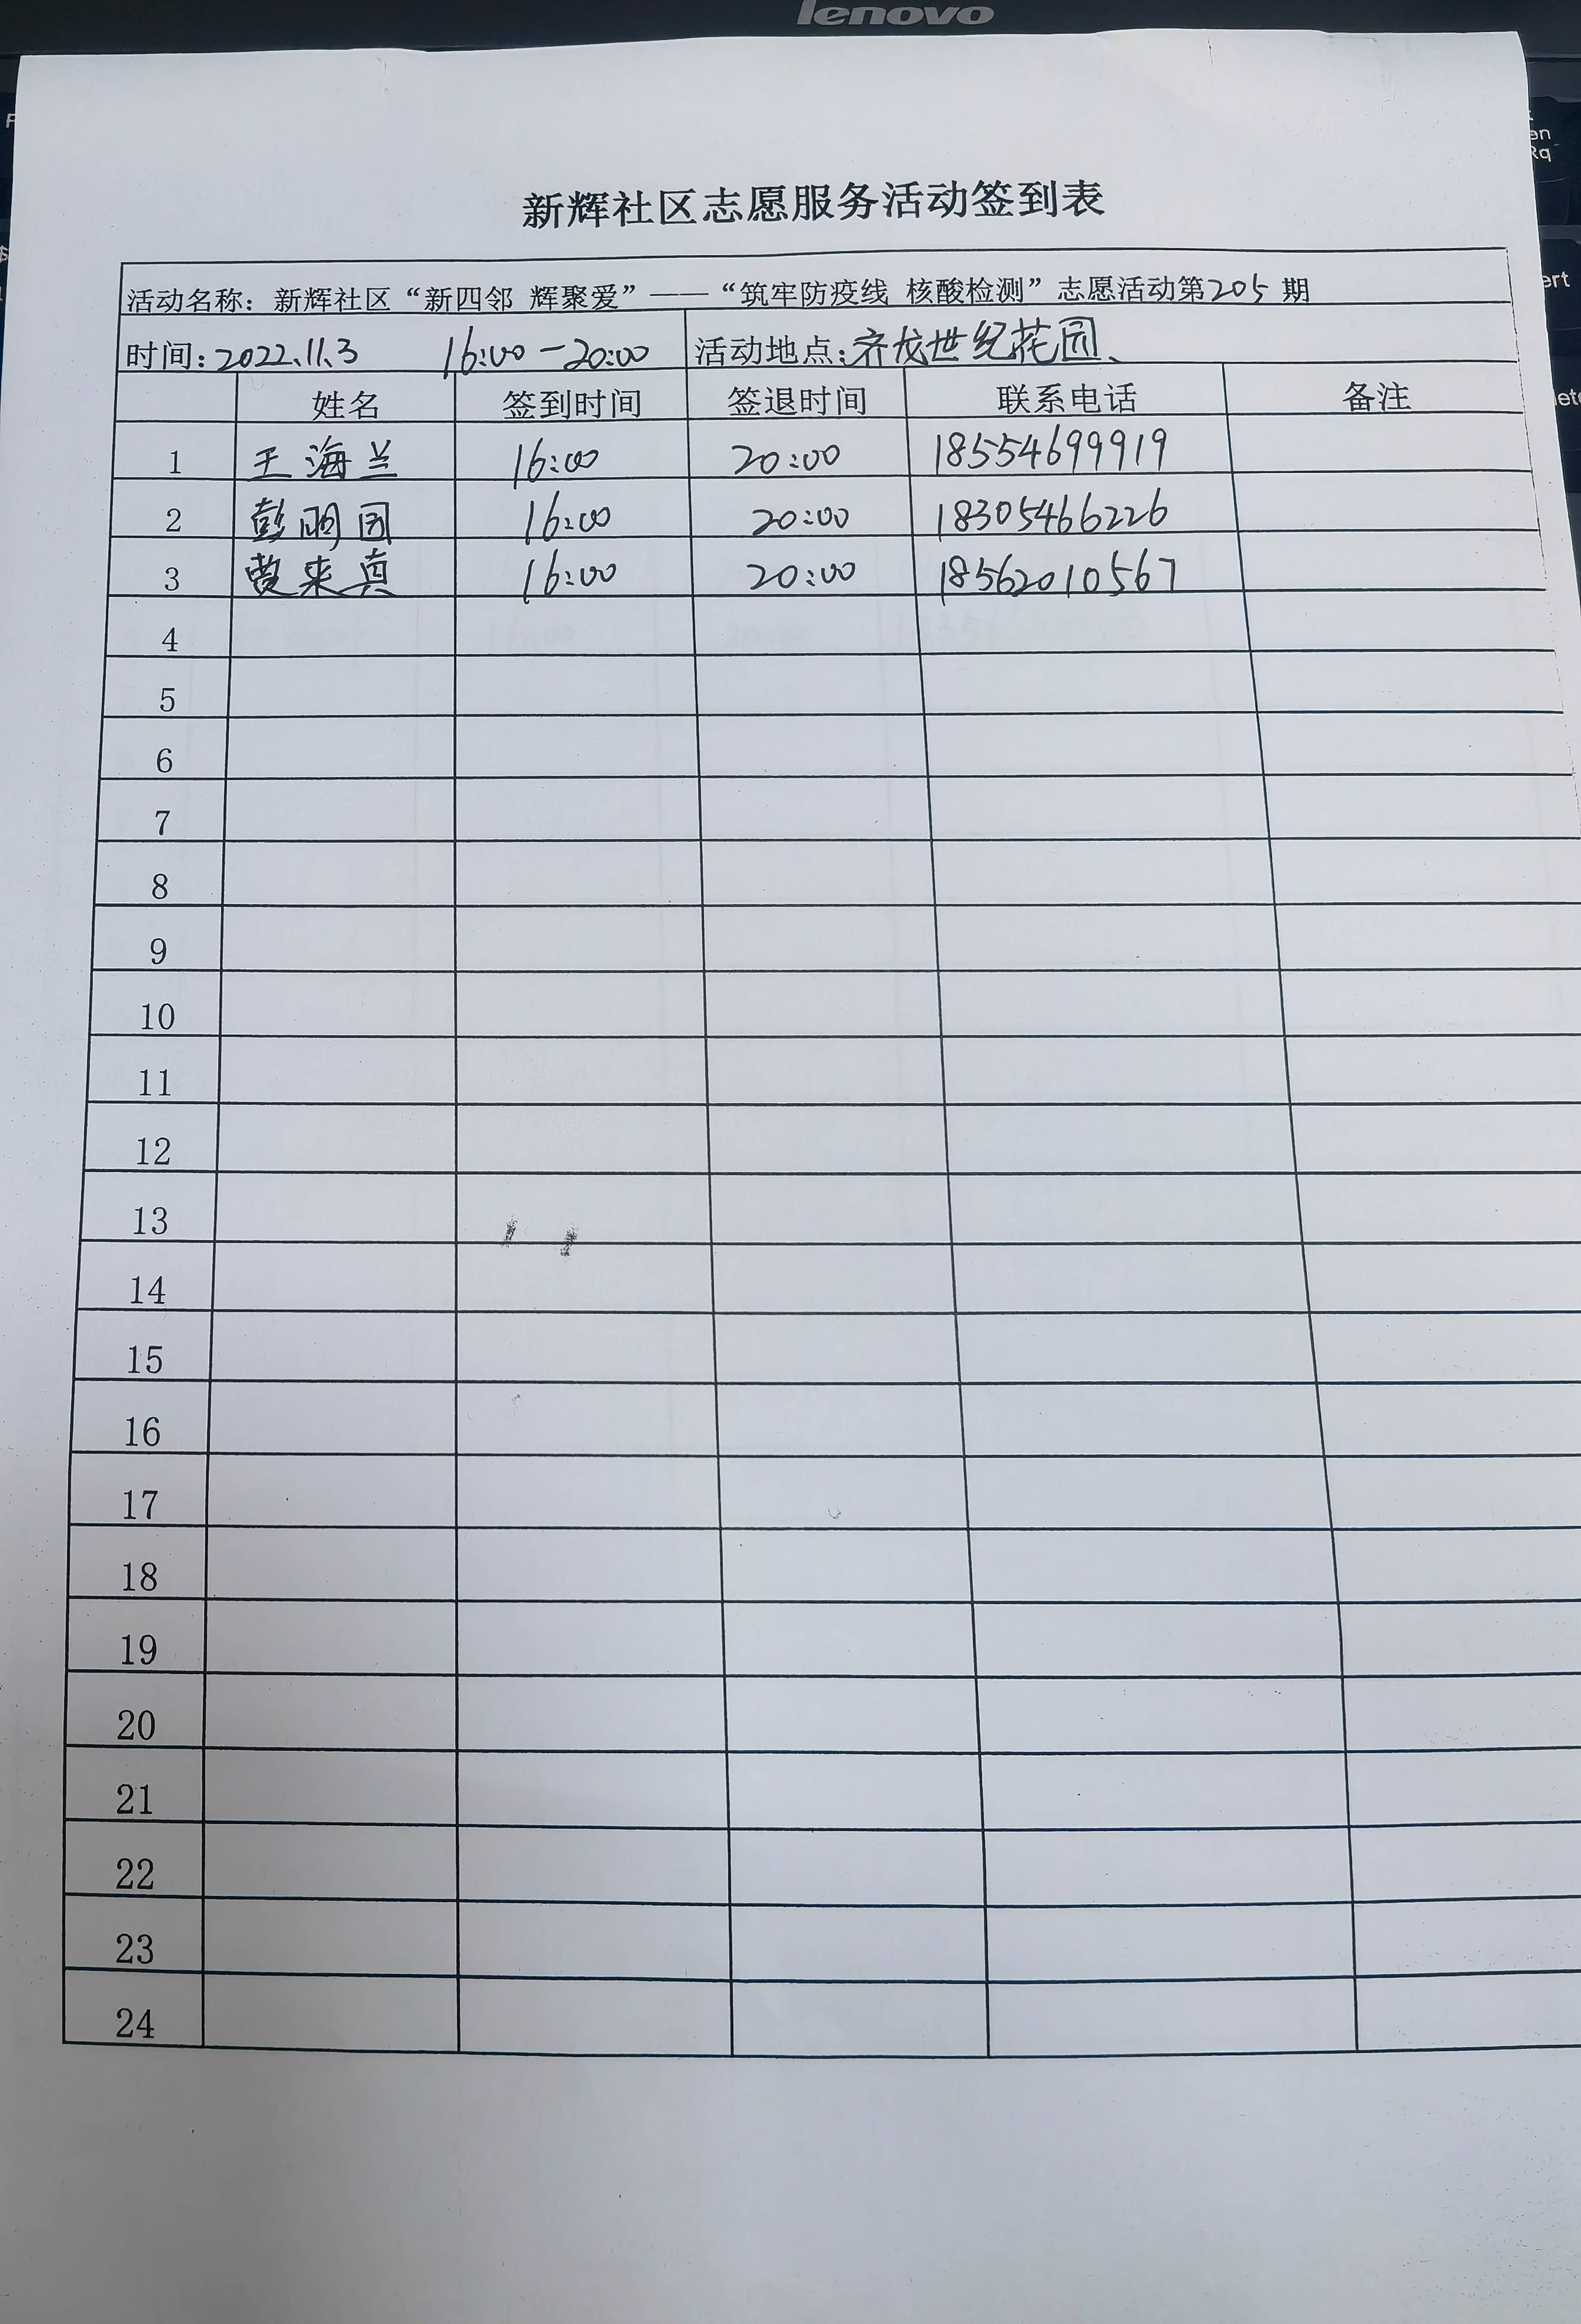 lenovo
新辉社区志愿服务活动签到表
活动名称：新辉社区“新四邻 辉聚爱”——“筑牢防疫线 核酸检测”志愿活动第205期
时间：2022.11.3 16:00-20:00 活动地点：齐龙世纪花园、
姓名 签到时间 签退时间 联系电话 备注
1 王海兰 16:00 20:00 18554699919
2 彭明 16:00 20:00 18305466226
3 来真 16:00 20:00 18562010567
4
5
6
7
8
9
10
11
12
13
14
15
16
17
18
19
20
21
22
23
24